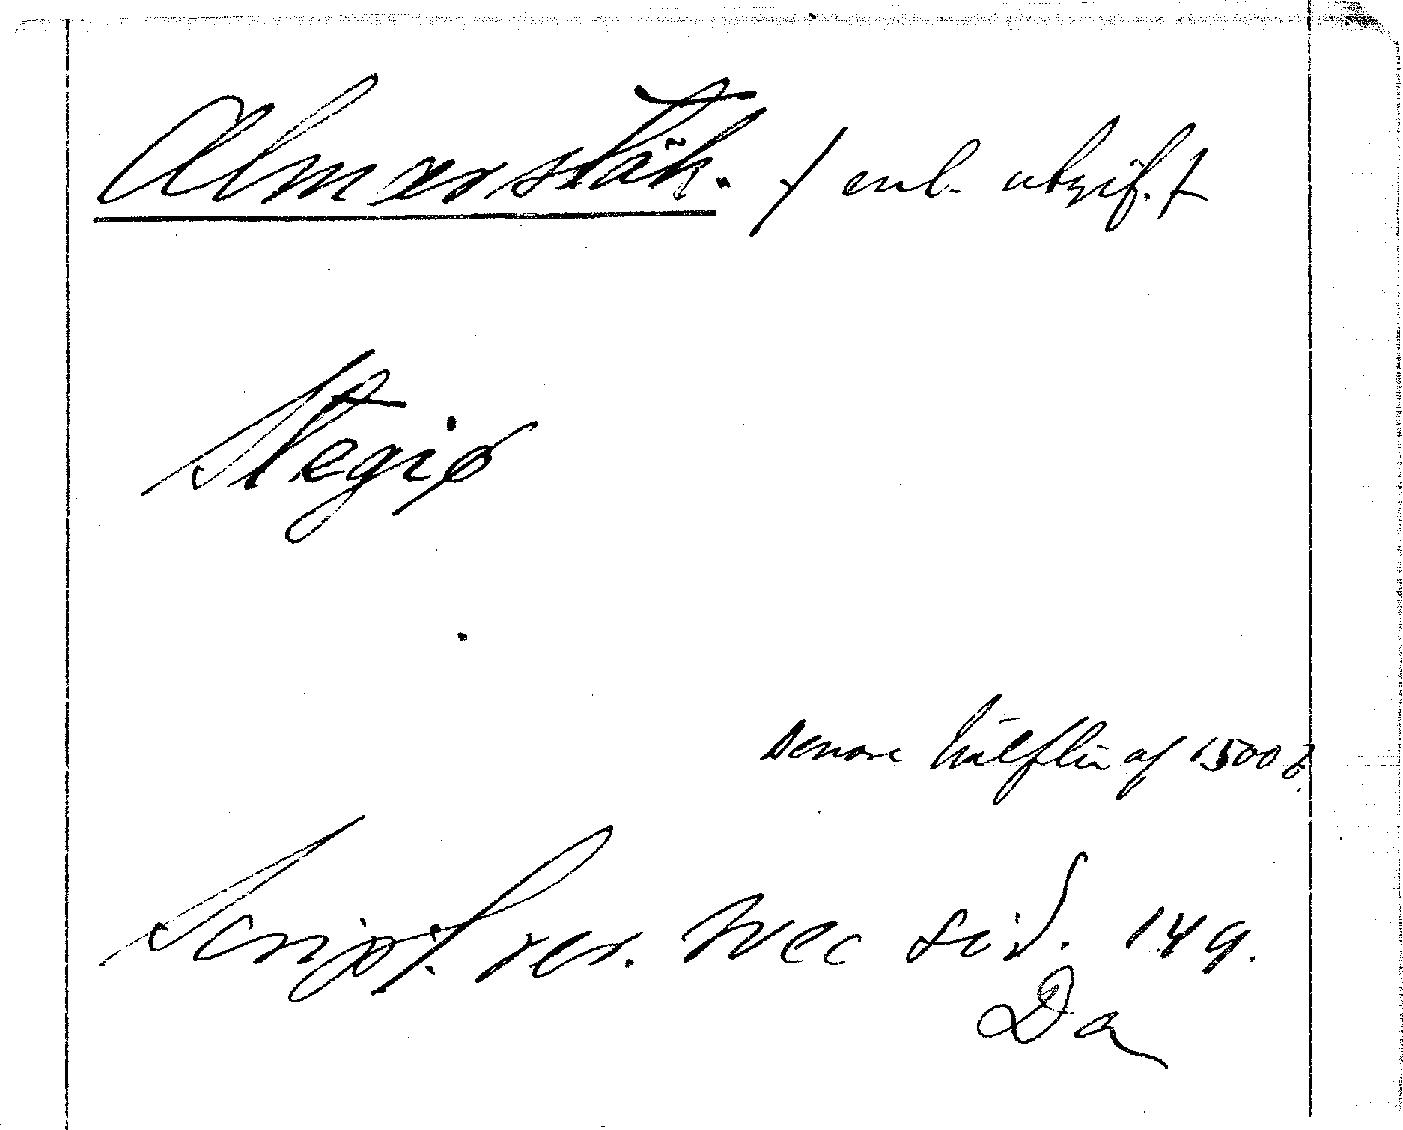 Almarstäk. / enl. utgift
Stegiø
senare hälften af 1500 t.
Script. rer. svec sid. 149.
Da